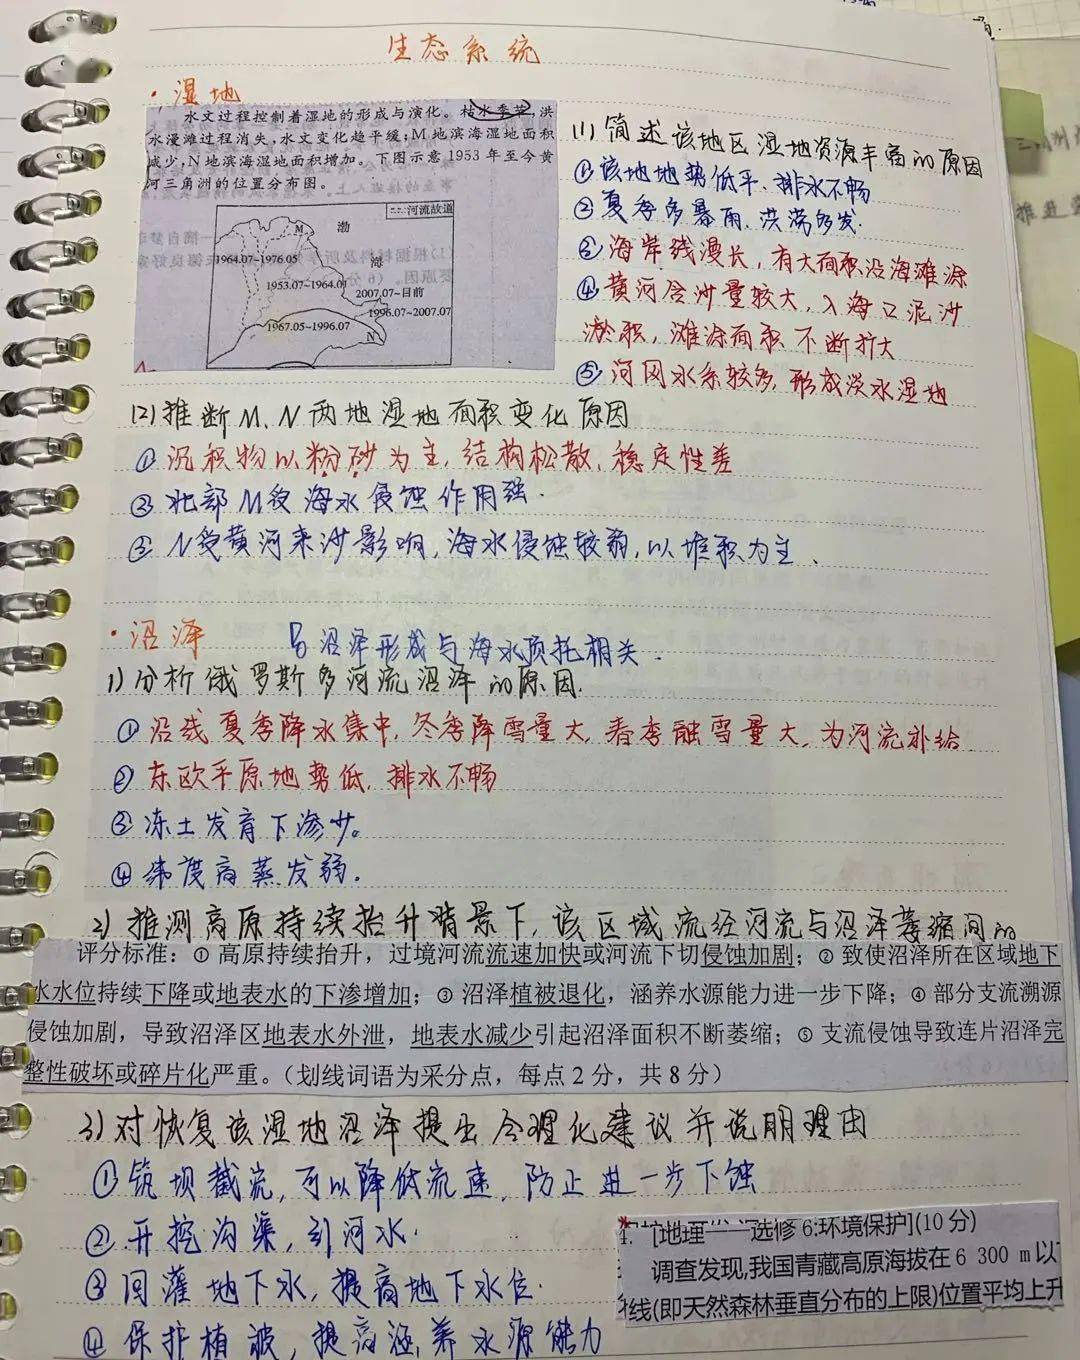 生态系统
·湿地
水文过程控制着湿地的形成与演化。枯水季节,洪
水漫滩过程消失,水文变化趋平缓;M地滨海湿地面积
减少,N地滨海湿地面积增加。下图示意1953年至今黄
河三角洲的位置分布图。
河流故道
M 渤
1964.07~1976.05
海
1953.07~1964.01
2007.07~目前
1996.07~2007.07
1967.05~1996.07
N
(1)简述该地区湿地资源丰富的原因
①该地地势低平、排水不畅
②夏季多暴雨,洪涝多发.
③海岸线漫长,有大面积沿海滩涂
④黄河含沙量较大,入海口泥沙
淤积,滩涂面积不断扩大
⑤河网水系较多,形成淡水湿地
(2)推断M、N两地湿地面积变化原因
①沉积物以粉砂为主,结构松散,稳定性差
②北部M受海水侵蚀作用强.
③N受黄河来沙影响,海水侵蚀较弱,以堆积为主.
·沼泽
沼泽形成与海水顶托相关.
1)分析俄罗斯多河流沼泽的原因.
①沿线夏季降水集中,冬季降雪量大,春季融雪量大,为河流补给.
②东欧平原地势低,排水不畅
③冻土发育下渗少。
④纬度高蒸发弱.
2)推测高原持续抬升背景下,该区域流经河流与沼泽萎缩间的
评分标准:①高原持续抬升,过境河流流速加快或河流下切侵蚀加剧;②致使沼泽所在区域地下
水水位持续下降或地表水的下渗增加;③沼泽植被退化,涵养水源能力进一步下降;④部分支流溯源
侵蚀加剧,导致沼泽区地表水外泄,地表水减少引起沼泽面积不断萎缩;⑤支流侵蚀导致连片沼泽完
整性破坏或碎片化严重。(划线词语为采分点,每点2分,共8分)
3)对恢复该湿地沼泽提出合理化建议并说明理由
①筑坝截流,可以降低流速,防止进一步下蚀
②开挖沟渠,引河水.
③回灌地下水,提高地下水位.
④保护植被,提高涵养水源能力
[地理——选修6:环境保护](10分)
调查发现,我国青藏高原海拔在6 300 m以
线(即天然森林垂直分布的上限)位置平均上升